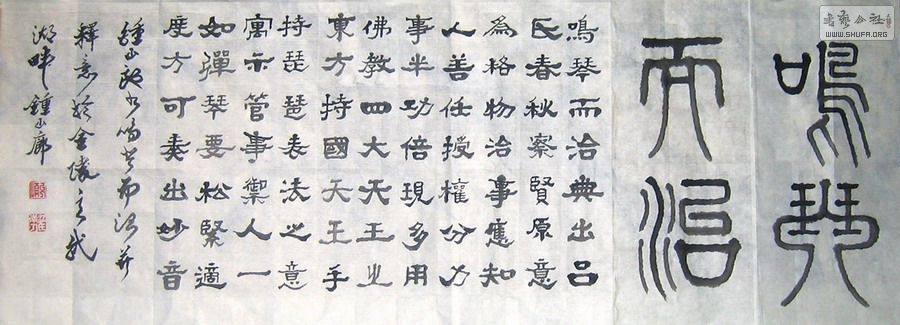 鳴琴
而治
鳴琴而治典出呂
氏春秋察賢原意
為格物治事應知
人善任授權分力
事半功倍現多用
佛教四大天王之
東方持國天王手
持琵琶表法之意
寓示管事禦人一
如彈琴要松緊適
度方可奏出妙音
鍾山 書鳴琴而治并
釋意於金陵玄武
湖畔 鍾山廊
书艺公社
WWW.SHUFA.ORG